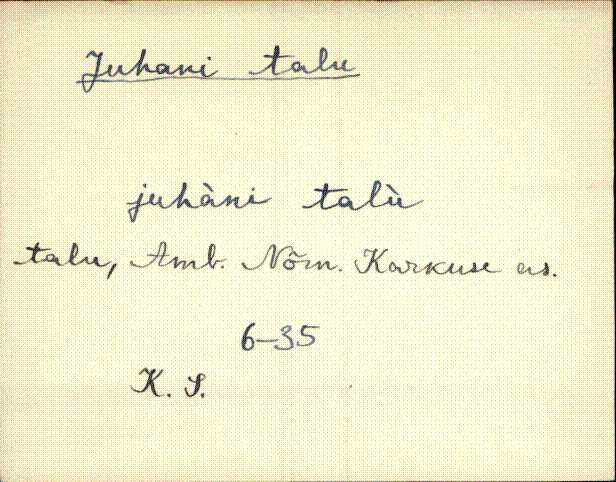 Juhani talu
juhàni talù
talu, Amb. Nõm. Karkuse as.
6-35
K. S.